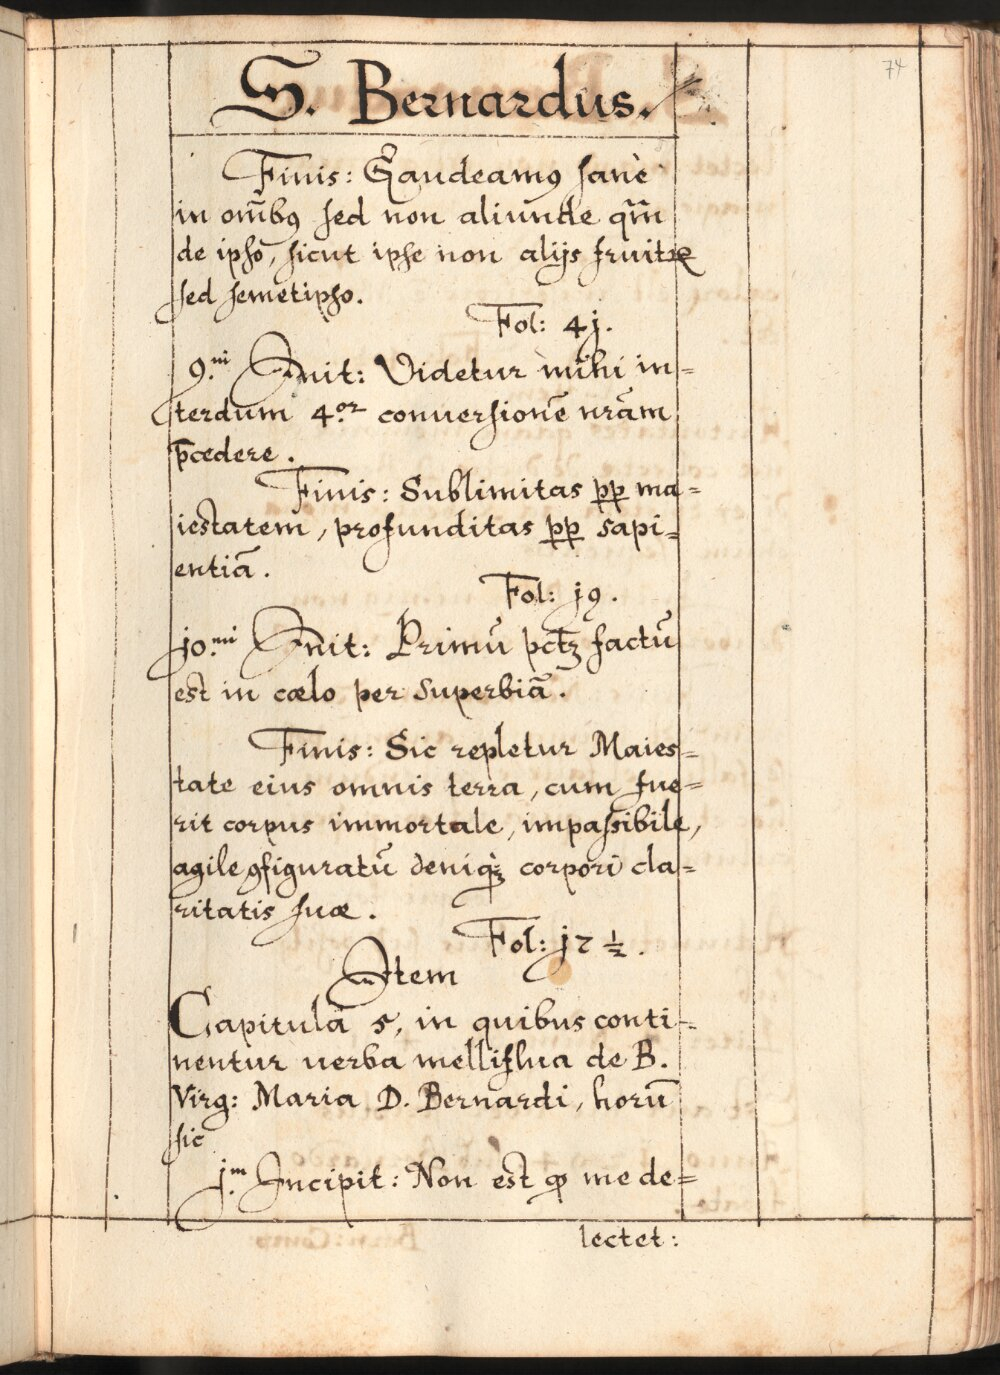 74
S. Bernardus.
Finis: Gaudeamꝰ sanè
in om̃ibꝰ sed non aliunde qm̃
de ipso, sicut ipse non alijs fruitᷣ
sed semetipso.
Fol: 4j.
9.ni Init: Videtur mihi in=
terdum 4.or conuersionē nr̃am
p̄cedere.
Finis: Sublimitas pp ma=
iestatem, profunditas pp sapi=
entiā.
Fol: j9.
jo.mi Init: Primū pctꝫ factū
est in cœlo per superbiā.
Finis: Sic repletur Maies=
tate eius omnis terra, cum fue=
rit corpus immortale, impassibile,
agile ꝯfiguratū deniqꝫ corpori cla=
ritatis suæ.
Fol: j7 ½.
Item
Capitula 5, in quibus conti=
nentur uerba melliflua de B.
Virg: Maria D. Bernardi, horū
sic
j.m Incipit: Non est ꝙ me de=
lectet: